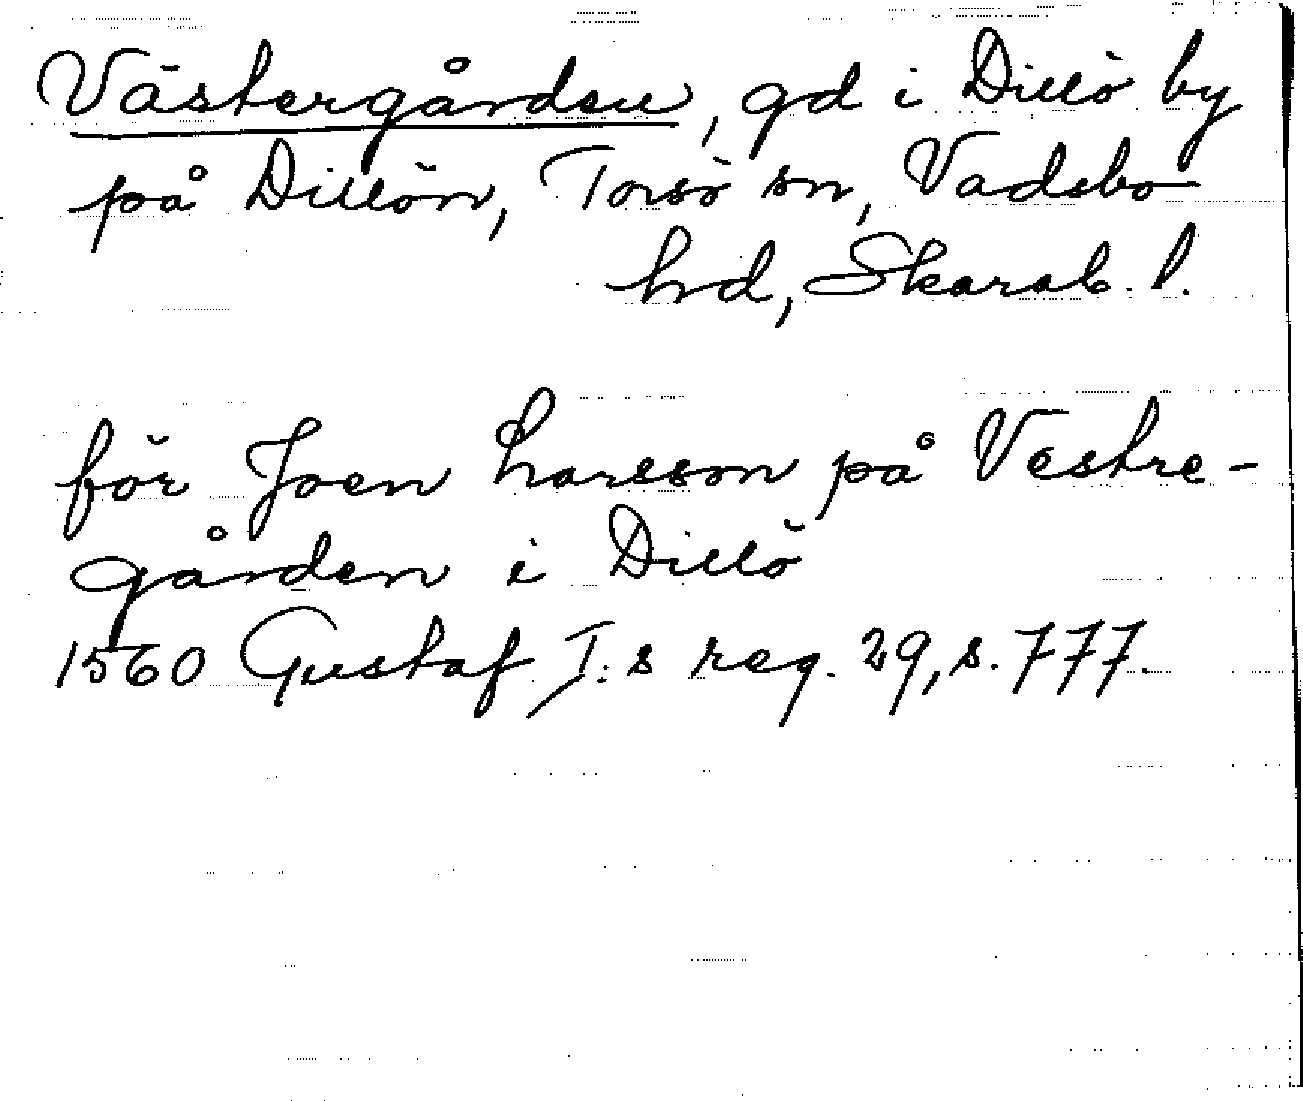 Västergården, gd i Dillö by
på Dillön, Torsö sn, Vadsbo
hd, Skarab. l.
för Joen Larsson på Vestre-
gården i Dillö
1560 Gustaf I:s reg. 29, s. 777.